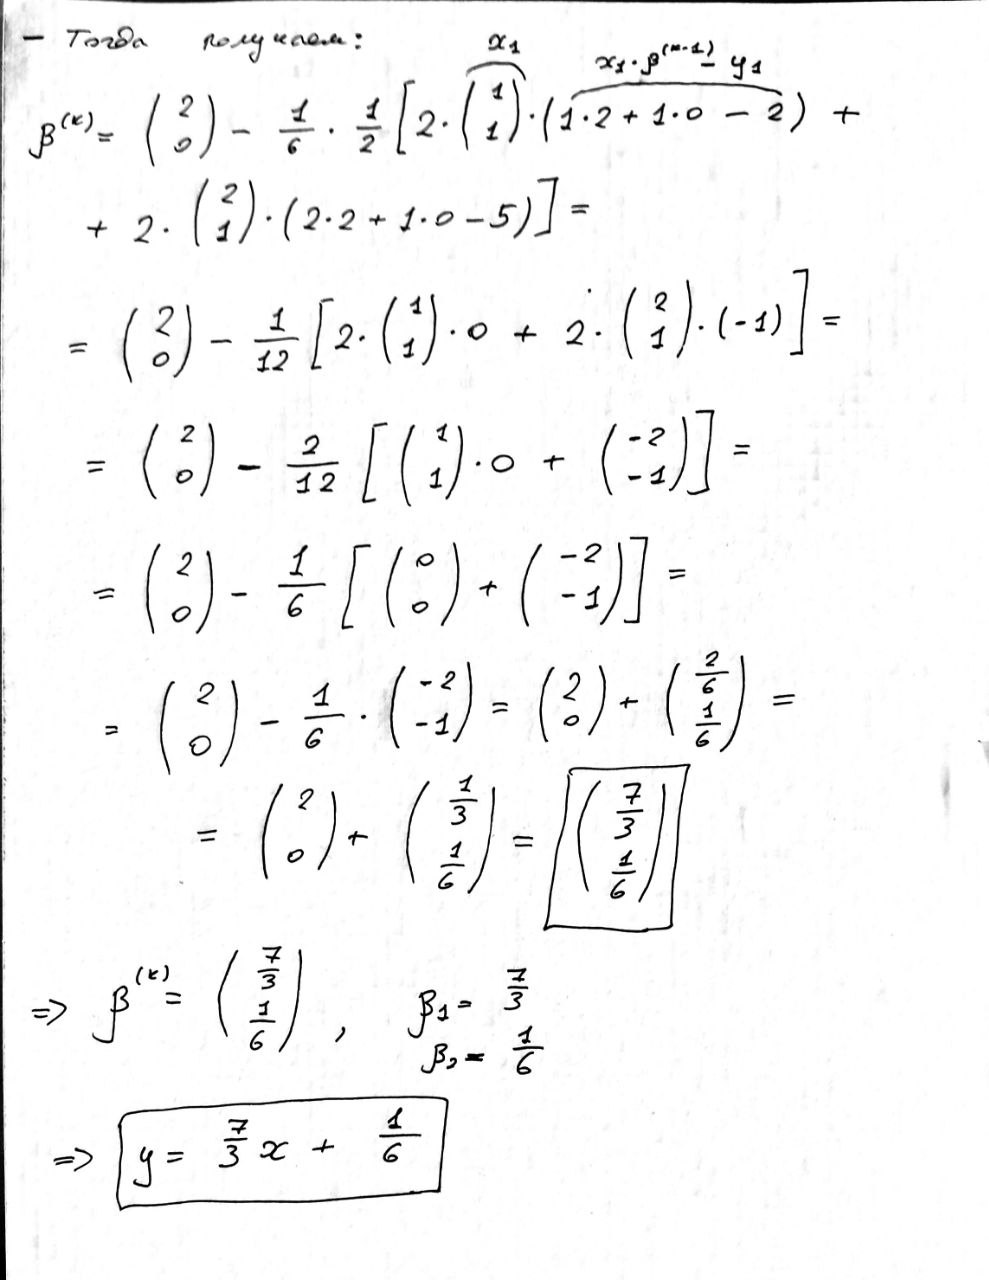 – Тогда получаем:
x₁
x₁·β^(k-1) – y₁
β^(k) = (2 0) – 1/6 · 1/2 [2·(1 1)·(1·2 + 1·0 – 2) +
+ 2·(2 1)·(2·2 + 1·0 – 5)] =
= (2 0) – 1/12 [2·(1 1)·0 + 2·(2 1)·(-1)] =
= (2 0) – 2/12 [(1 1)·0 + (-2 -1)] =
= (2 0) – 1/6 [(0 0) + (-2 -1)] =
= (2 0) – 1/6 · (-2 -1) = (2 0) + (2/6 1/6) =
= (2 0) + (1/3 1/6) = (7/3 1/6)
=> β^(k) = (7/3 1/6), β₁ = 7/3
β₂ = 1/6
=> y = 7/3 x + 1/6